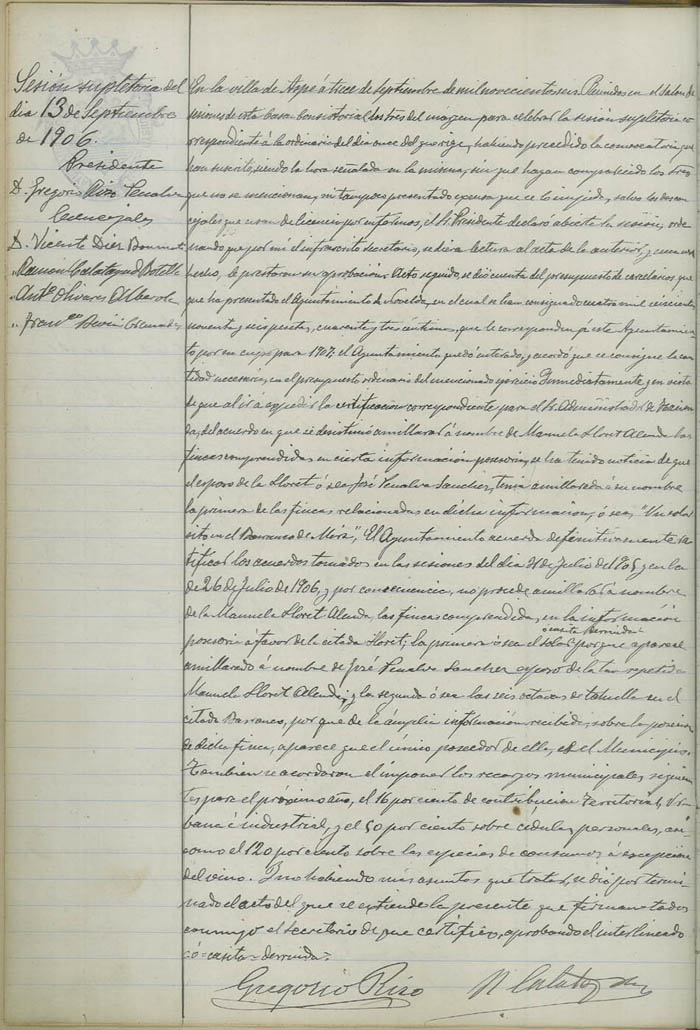 Sesión supletoria del
dia 13 de Septiembre
de 1906.
Presidente
D. Gregorio Rizo Penalva
Concejales
D. Vicente Diez
" Ramón Calatayud Botella
" Antº Olivares
" Franco
En la villa de Aspe á trece de Septiembre de mil novecientos seis. Reunidos en el Salon de
sesiones de esta Casa Consistorial los Sres del margen para celebrar la sesión supletoria co-
rrespondiente á la ordinaria del dia once del que rige, habiendo precedido la convocatoria que
han suscrito, siendo la hora señalada en la misma, sin que hayan comparecido los Sres
que no se mencionan, ni tampoco presentado escusa que se lo impida, salvo los dos con-
cejales que usan de licencia por enfermos, el Sr. Presidente declaró abierta la sesión, orde-
nando que por mi el infrascrito secretario, se diera lectura al acta de la anterior, y
hecho, le prestaron su aprobacion. Acto seguido, se dió cuenta del presupuesto de carcelarios, que
que ha presentado el Ayuntamiento de Novelda, en el cual se han consignado cuatro mil seiscientas
noventa y seis pesetas, cuarenta y tres céntimos, que le corresponden á este Ayuntamien-
to por su cupo para 1907; el Ayuntamiento quedó enterado, y acordó que se consigne la can-
tidad necesaria, en el presupuesto ordinario del mencionado ejercicio. Inmediatamente y en vista
de que al ir á expedir la certificacion correspondiente para el Sr. Administrador de Hacien-
da, del acuerdo en que se desestimó amillarar á nombre de Manuela Lloret Alenda las
fincas comprendidas en cierta información posesoria, se ha tenido noticia de que
el esposo de la Lloret ó sea José Penalva Sanchez, tenia amillarada á su nombre
la primera de las fincas relacionadas en dicha informacion, ó sea, "Un solar
sito en el Barranco de Mira", El Ayuntamiento acuerda definitivamente ra-
tificar los acuerdos tomados en las sesiones del dia de Julio del 905 y en la
de 26 de Julio de 1906, y por consecuencia, no procede amillarar á nombre
de la Manuela Lloret Alenda, las fincas comprendidas, en la información
posesoria á favor de la citada Lloret; la primera ó sea el solar ó casita derruida porque aparece
amillarado á nombre de José Penalva Sanchez esposo de la tan repetida
Manuela Lloret Alenda; y la segunda ó sea las seis octavas de tahulla en el
citado Barranco, por que de la ámplia información recibida, sobre la posesion
de dicha finca, aparece que el único poseedor de ella, es el Municipio.
Tambien se acordaron el imponer los recargos municipales siguien-
tes para el próximo año, el 16 por ciento de contribucion Territorial, Ur-
bana é industrial, y el 50 por ciento sobre cédulas personales, asi
como el 120 por ciento sobre las especies de consumos á excepcion
del vino. Y no habiendo más asuntos que tratar, se dió por termi-
nado el acto del que se extiende la presente que firman todos
conmigo el secretario de que certifico, aprobando el interlineado
"ó=casita=derruida".
Gregorio Rizo R Calatayud